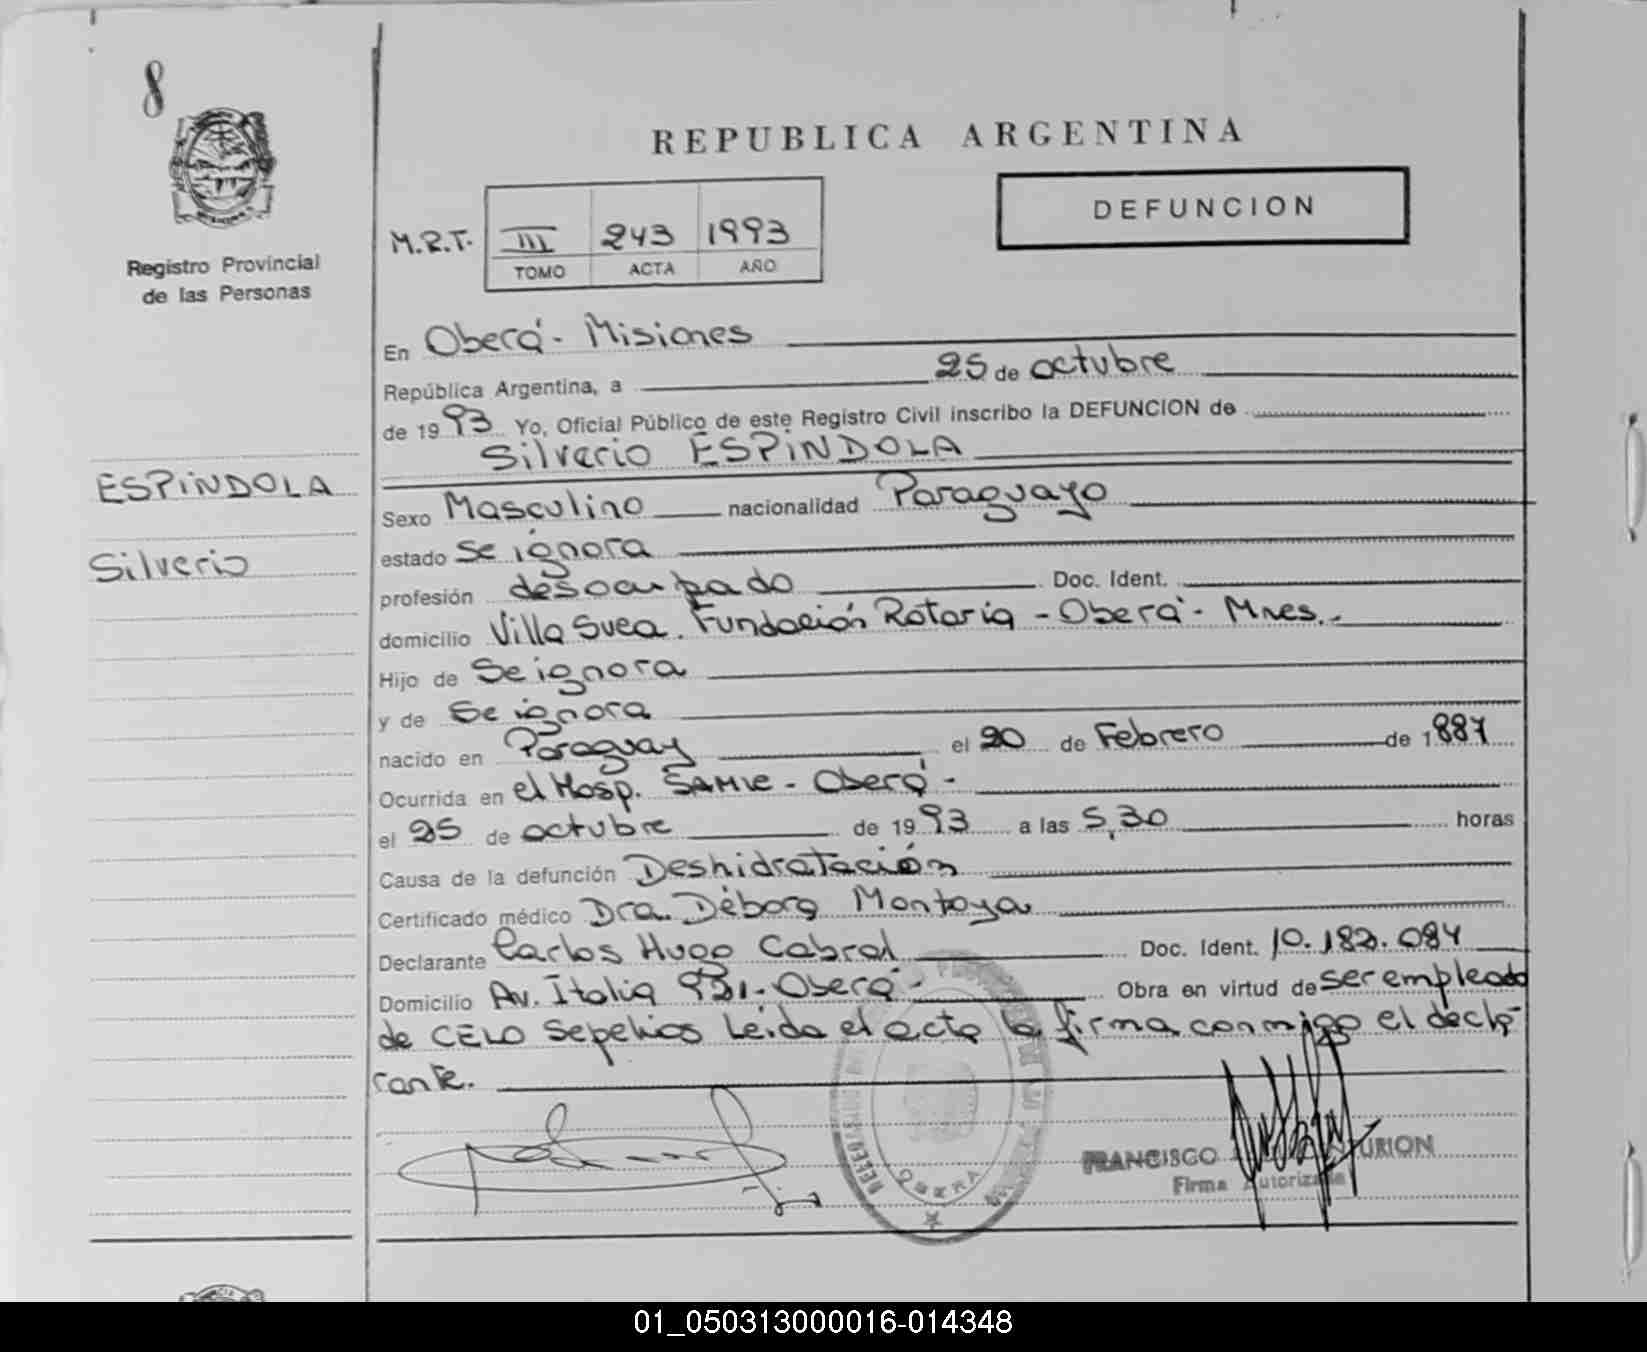 8
Registro Provincial
de las Personas
ESPINDOLA
Silverio
REPUBLICA ARGENTINA
DEFUNCION
M.R.T. III 243 1993
TOMO ACTA AÑO
En Oberá - Misiones
República Argentina, a 25 de octubre
de 1993 Yo, Oficial Público de este Registro Civil inscribo la DEFUNCION de
Silverio ESPINDOLA
Sexo Masculino nacionalidad Paraguayo
estado se ignora
profesión desocupado Doc. Ident.
domicilio Villa Svea. Fundación Rotaria - Oberá - Mnes.
Hijo de Se ignora
y de Se ignora
nacido en Paraguay el 20 de Febrero de 1887
Ocurrida en el Hosp. SAMIC - Oberá -
el 25 de octubre de 1993 a las 5,30 horas
Causa de la defunción Deshidratación
Certificado médico Dra. Débora Montoya
Declarante Carlos Hugo Cabral Doc. Ident. 10.182.084
Domicilio Av. Italia 931 - Oberá - Obra en virtud de ser empleado
de CELO Sepelios Leida el acta la firma conmigo el decla-
rante.
OBERA
FRANCISCO
Firma Autorizada
01_050313000016-014348